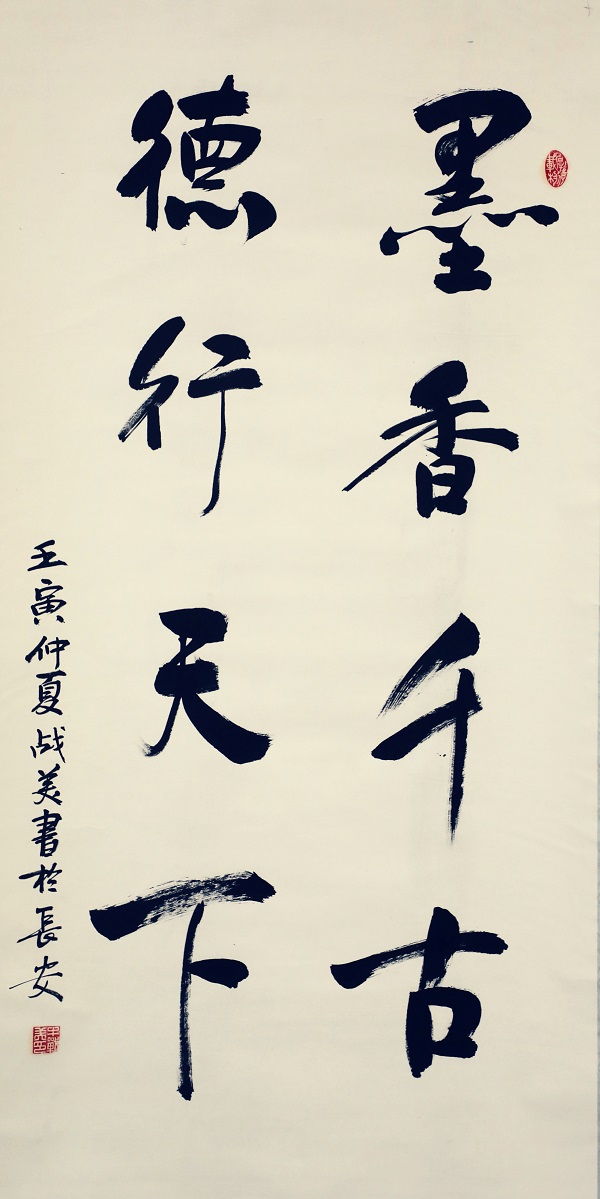 墨香千古
德行天下
壬寅仲夏战美書於長安